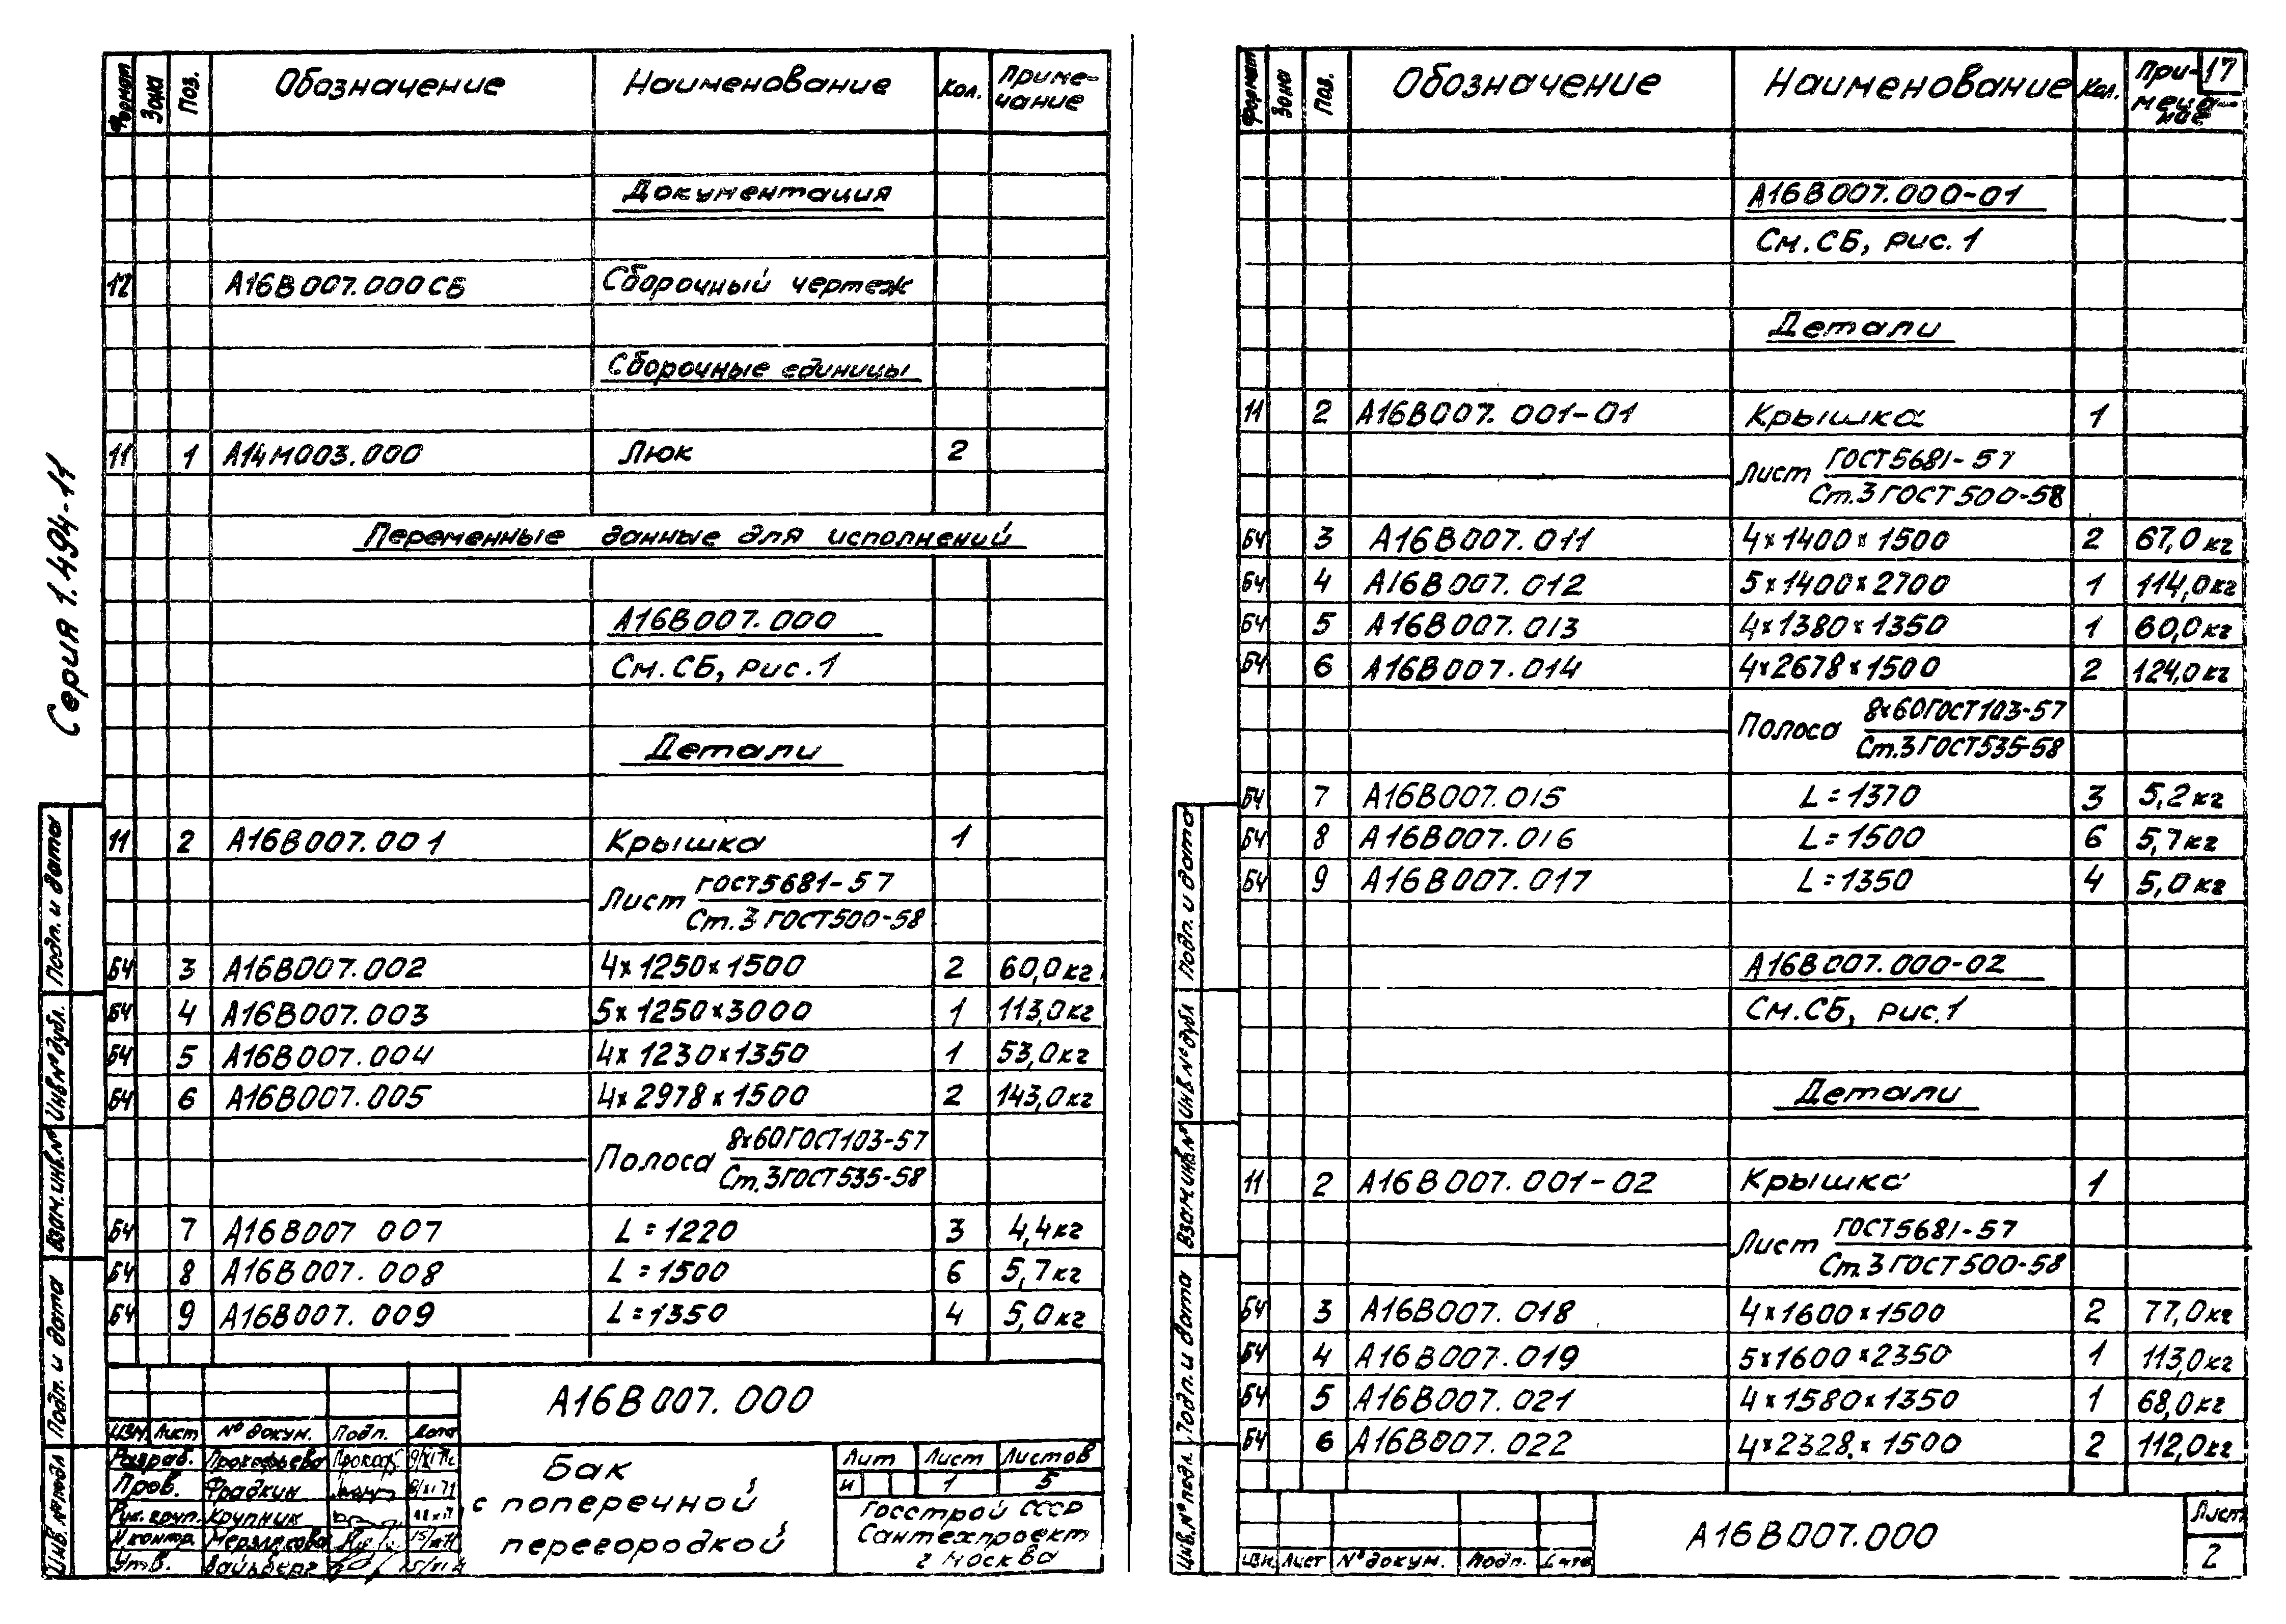 Серия 1.494-11
Формат Зона Поз. Обозначение Наименование Кол. Приме-
чание
Документация
12 А16В007.000СБ Сборочный чертеж
Сборочные единицы
11 1 А14М003.000 Люк 2
Переменные данные для исполнений
А16В007.000
См.СБ, рис.1
Детали
11 2 А16В007.001 Крышка 1
Лист ГОСТ5681-57
Ст.3 ГОСТ500-58
БЧ 3 А16В007.002 4х1250х1500 2 60,0кг
БЧ 4 А16В007.003 5х1250х3000 1 113,0кг
БЧ 5 А16В007.004 4х1230х1350 1 53,0кг
БЧ 6 А16В007.005 4х2978х1500 2 143,0кг
Полоса 8х60ГОСТ103-57
Ст.3ГОСТ535-58
БЧ 7 А16В007 007 L=1220 3 4,4кг
БЧ 8 А16В007.008 L=1500 6 5,7кг
БЧ 9 А16В007.009 L=1350 4 5,0кг
Подп. и дата
Инв.№дубл.
Взам.инв.№
Подп. и дата
Инв.№подл
А16В007.000
Изм. Лист № докум. Подп. Дата
Разраб. Прокофьева
Пров. Фрадкин
Рук.груп. Крупник
Н контр. Мерзлякова
Утв. Вайсберг
Бак
с поперечной
перегородкой
Лит Лист Листов
и 1 5
Госстрой СССР
Сантехпроект
г Москва
17
Формат Зона Поз. Обозначение Наименование Кол. При-
меча-
ние
А16В007.000-01
См.СБ, рис.1
Детали
11 2 А16В007.001-01 Крышка 1
Лист ГОСТ5681-57
Ст.3 ГОСТ500-58
БЧ 3 А16В007.011 4х1400х1500 2 67,0кг
БЧ 4 А16В007.012 5х1400х2700 1 114,0кг
БЧ 5 А16В007.013 4х1380х1350 1 60,0кг
БЧ 6 А16В007.014 4х2678х1500 2 124,0кг
Полоса 8х60ГОСТ103-57
Ст.3ГОСТ535-58
БЧ 7 А16В007.015 L=1370 3 5,2кг
БЧ 8 А16В007.016 L=1500 6 5,7кг
БЧ 9 А16В007.017 L=1350 4 5,0кг
А16В007.000-02
См.СБ, рис.1
Детали
11 2 А16В007.001-02 Крышка 1
Лист ГОСТ5681-57
Ст.3 ГОСТ500-58
БЧ 3 А16В007.018 4х1600х1500 2 77,0кг
БЧ 4 А16В007.019 5х1600х2350 1 113,0кг
БЧ 5 А16В007.021 4х1580х1350 1 68,0кг
БЧ 6 А16В007.022 4х2328х1500 2 112,0кг
Подп. и дата
Инв.№дубл
Взам.инв.№
Подп. и дата
Инв.№подл.
Изм. Лист № докум. Подп. Дата
А16В007.000
Лист
2